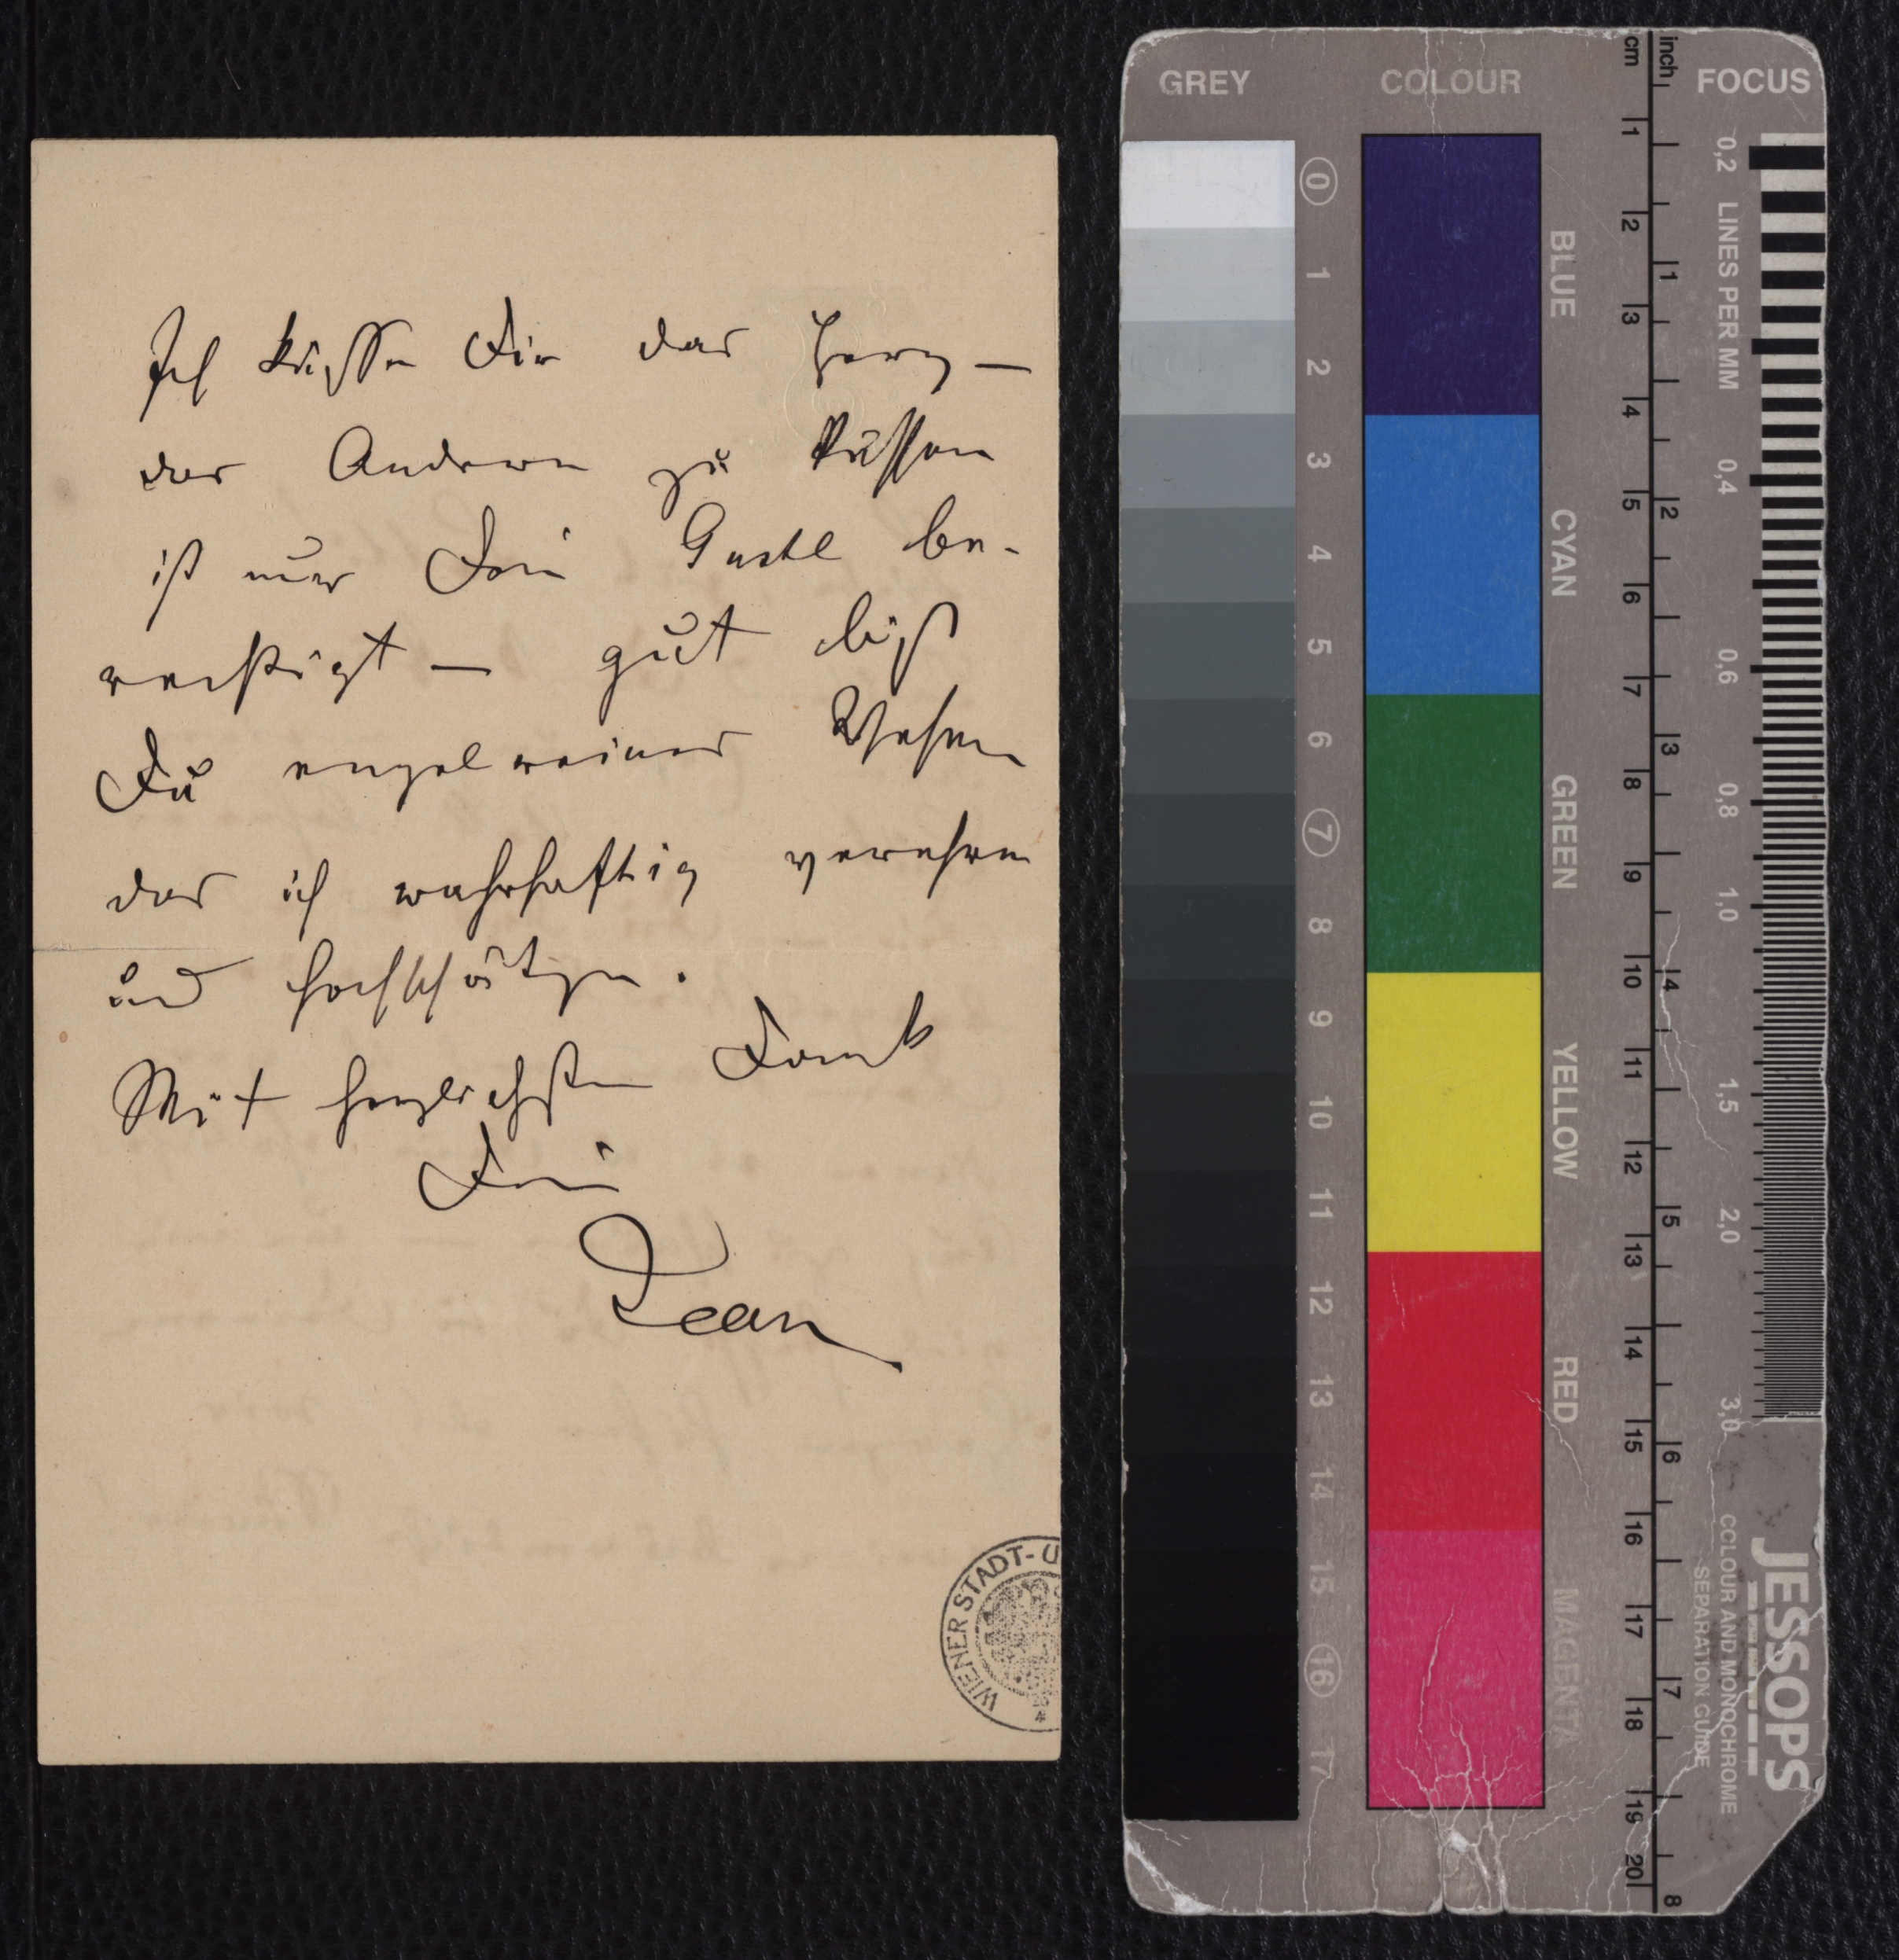 Ich küsse Dir das Herz —
das Andere zu küssen
ist nur Dein Gustl be-
rechtigt — gut bist
Du engelreines Wesen
das ich wahrhaftig verehre
und hochschätze.
Mit herzlichstem Dank
Dein
Jean
WIENER STADT- U
GREY
COLOUR
cm
inch
FOCUS
0 1 2 3 4 5 6 7 8 9 10 11 12 13 14 15 16 17
BLUE
CYAN
GREEN
YELLOW
RED
MAGENTA
1 2 3 4 5 6 7 8 9 10 11 12 13 14 15 16 17 18 19 20
1 2 3 4 5 6 7 8
0,2 LINES PER MM 0,4 0,6 0,8 1,0 1,5 2,0 3,0
JESSOPS
COLOUR AND MONOCHROME
SEPARATION GUIDE